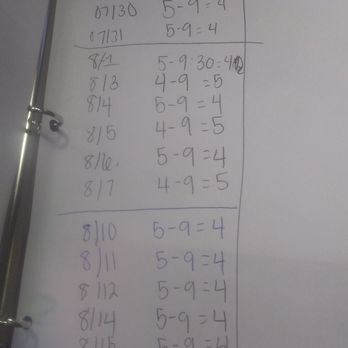 07/30 5-9=4
07/31 5-9=4
8/1 5-9:30=4
8/3 4-9=5
8/4 5-9=4
8/5 4-9=5
8/6. 5-9=4
8/7 4-9=5
8/10 5-9=4
8/11 5-9=4
8/12 5-9=4
8/14 5-9=4
8/15 5-9=4